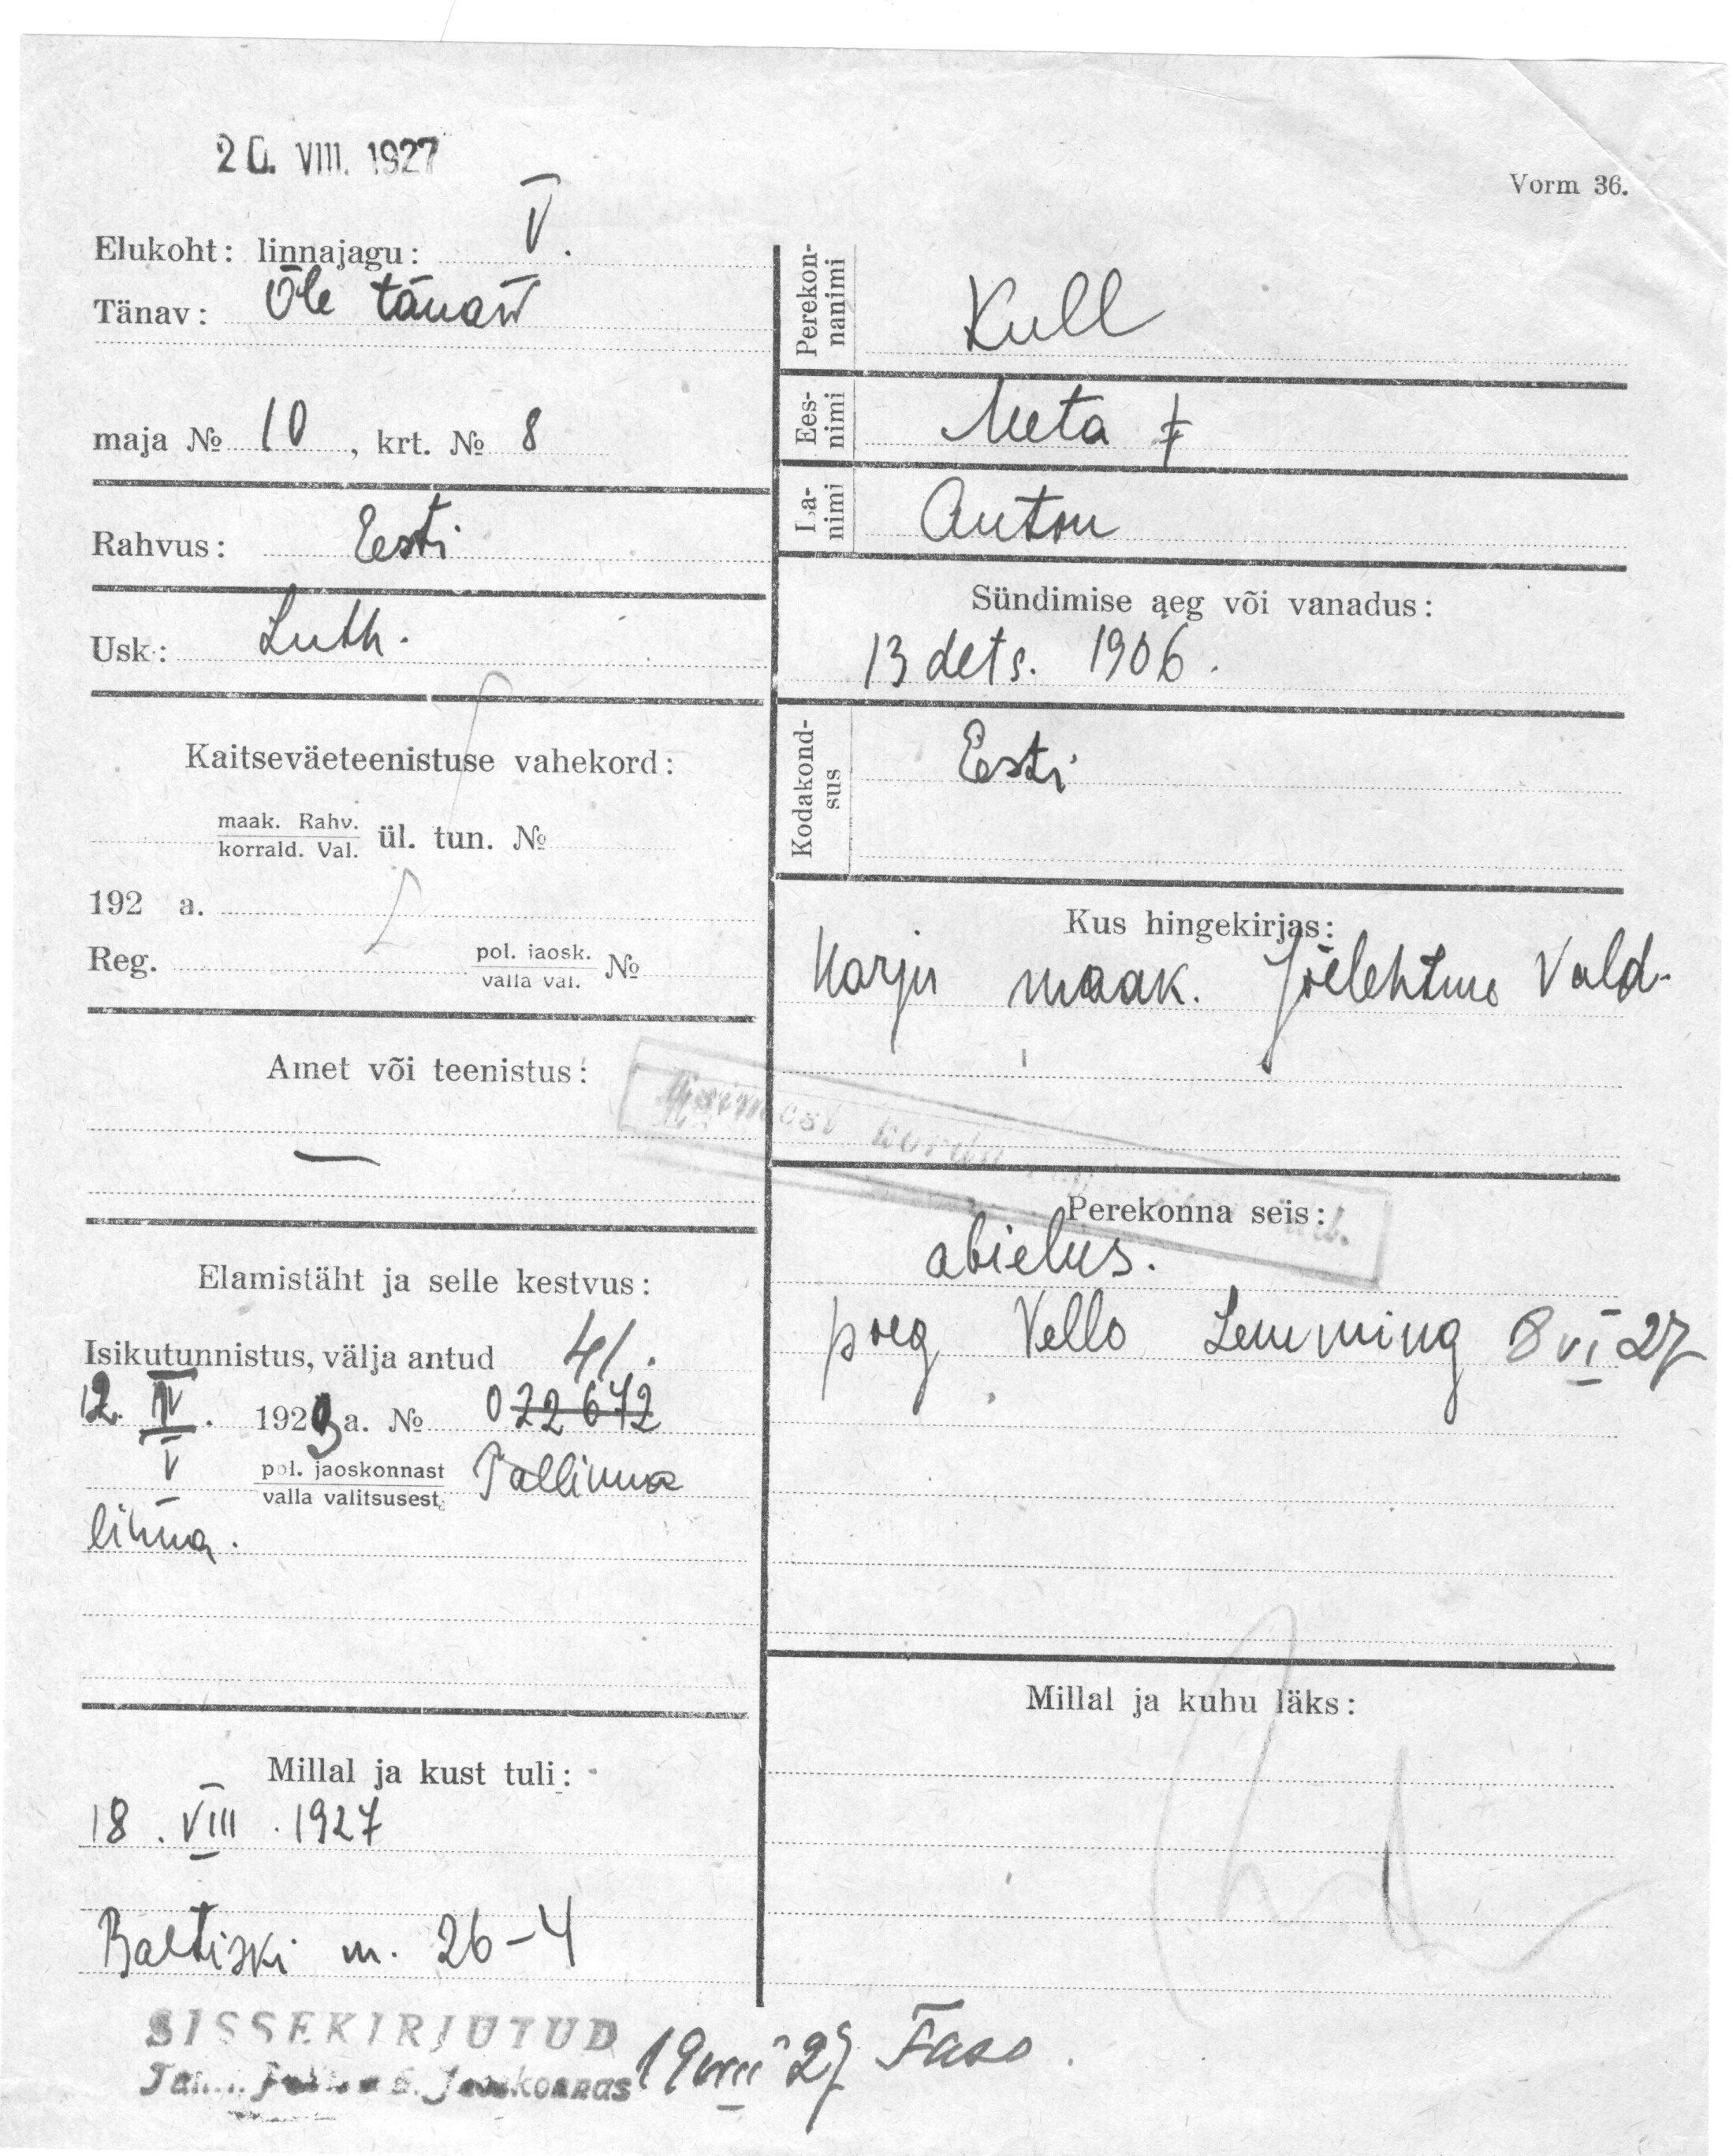 20. VIII. 1927
Vorm 36.
Elukoht: linnajagu: V.
Tänav: Õle tänaw
maja № 10, krt. № 8
Rahvus: Eesti
Usk: Luth.
Kaitseväeteenistuse vahekord:
maak. Rahv.
korrald. Val. ül. tun. №
192 a.
Reg. pol. jaosk. №
valla val.
Amet või teenistus:
—
Elamistäht ja selle kestvus:
Isikutunnistus, välja antud 41.
12. IV. 1923 a. № 022672
V pol. jaoskonnast Tallinna
valla valitsusest
linna.
Millal ja kust tuli:
18. VIII. 1927
Baltiski m. 26-4
Perekonnanimi
Kull
Eesnimi
Meta
Isanimi
Anton
Sündimise aeg või vanadus:
13 dets. 1906.
Kodakondsus
Eesti
Kus hingekirjas:
Harju maak. Jõelehtme Vald.
korda
Perekonna seis:
abielus.
poeg Vello Lemming 8 VI 27
Millal ja kuhu läks:
SISSEKIRJUTUD
Jaoskonnas 19 VIII 27